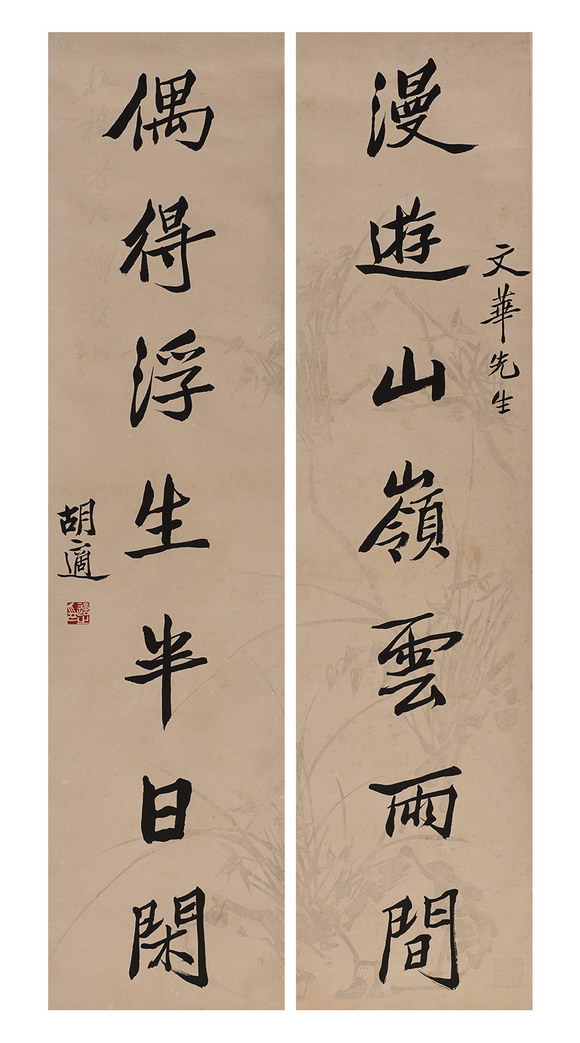 文華先生
漫遊山嶺雲雨間
偶得浮生半日閑
胡適